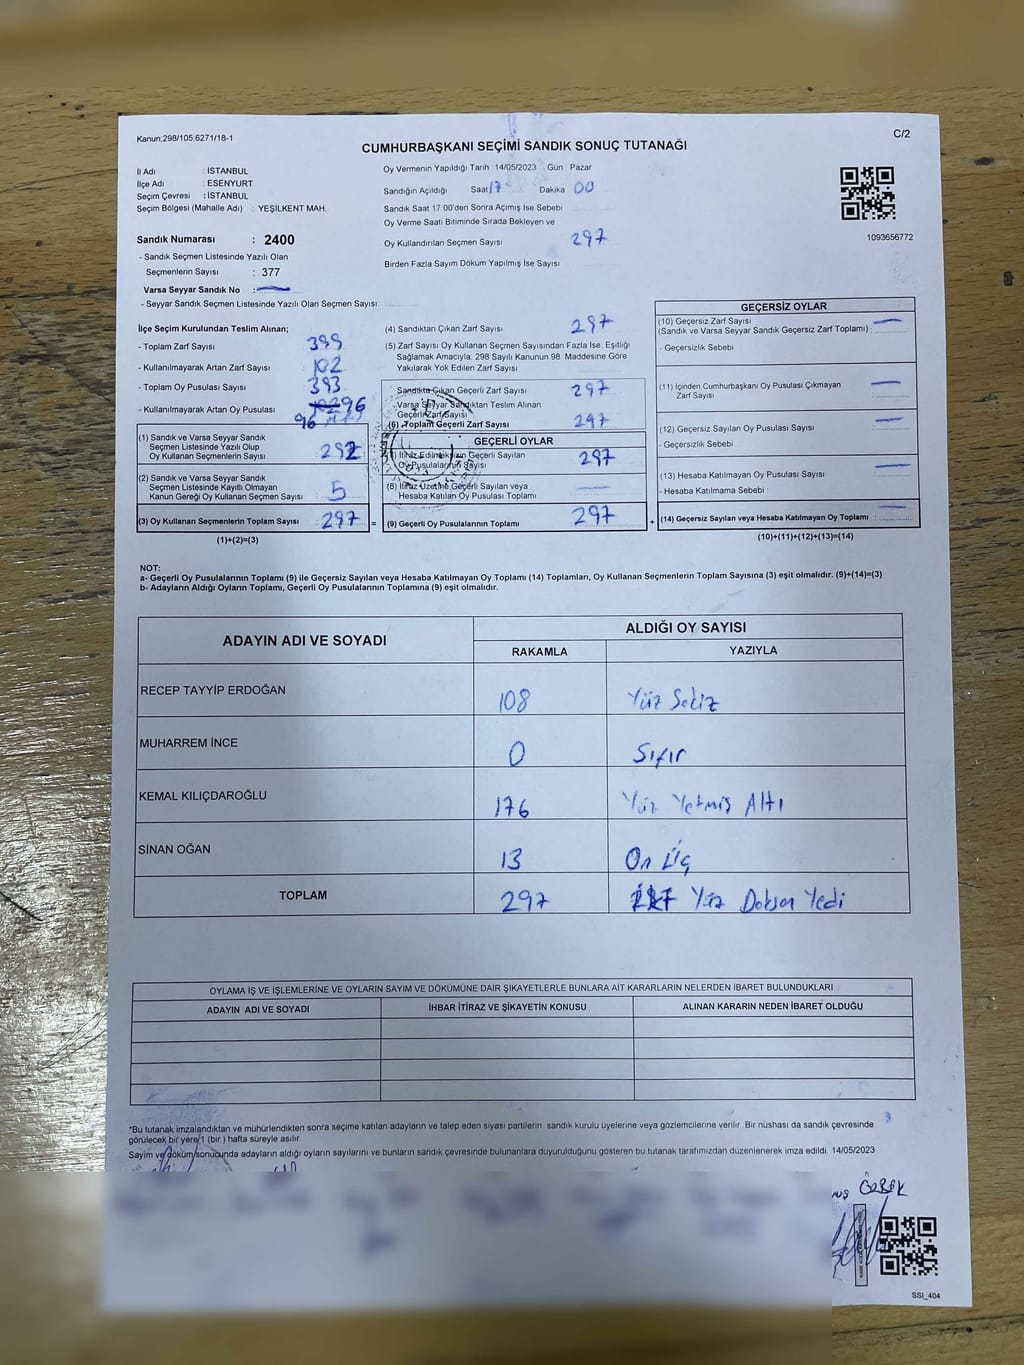 Kanun:298/105;6271/18-1
C/2
CUMHURBAŞKANI SEÇİMİ SANDIK SONUÇ TUTANAĞI
İl Adı : İSTANBUL
İlçe Adı : ESENYURT
Seçim Çevresi : İSTANBUL
Seçim Bölgesi (Mahalle Adı) : YEŞİLKENT MAH.
Sandık Numarası : 2400
- Sandık Seçmen Listesinde Yazılı Olan
Seçmenlerin Sayısı : 377
Varsa Seyyar Sandık No :
- Seyyar Sandık Seçmen Listesinde Yazılı Olan Seçmen Sayısı:
Oy Vermenin Yapıldığı Tarih 14/05/2023 Gün Pazar
Sandığın Açıldığı Saat 17 Dakika 00
Sandık Saat 17.00'den Sonra Açımış İse Sebebi
Oy Verme Saati Bitiminde Sırada Bekleyen ve
Oy Kullandırılan Seçmen Sayısı 297
Birden Fazla Sayım Döküm Yapılmış İse Sayısı
1093656772
İlçe Seçim Kurulundan Teslim Alınan;
- Toplam Zarf Sayısı 399
- Kullanılmayarak Artan Zarf Sayısı 102
- Toplam Oy Pusulası Sayısı 393
- Kullanılmayarak Artan Oy Pusulası 96
96
(1) Sandık ve Varsa Seyyar Sandık
Seçmen Listesinde Yazılı Olup
Oy Kullanan Seçmenlerin Sayısı : 292
(2) Sandık ve Varsa Seyyar Sandık
Seçmen Listesinde Kayıtlı Olmayan
Kanun Gereği Oy Kullanan Seçmen Sayısı : 5
(3) Oy Kullanan Seçmenlerin Toplam Sayısı : 297 =
(1)+(2)=(3)
(4) Sandıktan Çıkan Zarf Sayısı 297
(5) Zarf Sayısı Oy Kullanan Seçmen Sayısından Fazla İse, Eşitliği
Sağlamak Amacıyla, 298 Sayılı Kanunun 98. Maddesine Göre
Yakılarak Yok Edilen Zarf Sayısı
Sandıkta Çıkan Geçerli Zarf Sayısı 297
Varsa Seyyar Sandıktan Teslim Alınan
Geçerli Zarf Sayısı
(6) Toplam Geçerli Zarf Sayısı 297
GEÇERLİ OYLAR
İtiraz Edilmeksizin Geçerli Sayılan
Oy Pusulalarının Sayısı 297
(8) İtiraz Üzerine Geçerli Sayılan veya
Hesaba Katılan Oy Pusulası Toplamı
(9) Geçerli Oy Pusulalarının Toplamı 297 +
GEÇERSİZ OYLAR
(10) Geçersiz Zarf Sayısı
(Sandık ve Varsa Seyyar Sandık Geçersiz Zarf Toplamı) :
- Geçersizlik Sebebi
(11) İçinden Cumhurbaşkanı Oy Pusulası Çıkmayan
Zarf Sayısı :
(12) Geçersiz Sayılan Oy Pusulası Sayısı :
- Geçersizlik Sebebi
(13) Hesaba Katılmayan Oy Pusulası Sayısı :
- Hesaba Katılmama Sebebi :
(14) Geçersiz Sayılan veya Hesaba Katılmayan Oy Toplamı :
(10)+(11)+(12)+(13)=(14)
NOT:
a- Geçerli Oy Pusulalarının Toplamı (9) ile Geçersiz Sayılan veya Hesaba Katılmayan Oy Toplamı (14) Toplamları, Oy Kullanan Seçmenlerin Toplam Sayısına (3) eşit olmalıdır. (9)+(14)=(3)
b- Adayların Aldığı Oyların Toplamı, Geçerli Oy Pusulalarının Toplamına (9) eşit olmalıdır.
ADAYIN ADI VE SOYADI
ALDIĞI OY SAYISI
RAKAMLA YAZIYLA
RECEP TAYYİP ERDOĞAN 108 Yüz Sekiz
MUHARREM İNCE 0 Sıfır
KEMAL KILIÇDAROĞLU 176 Yüz Yetmiş Altı
SİNAN OĞAN 13 On Üç
TOPLAM 297 Yüz Doksan Yedi
OYLAMA İŞ VE İŞLEMLERİNE VE OYLARIN SAYIM VE DÖKÜMÜNE DAİR ŞİKAYETLERLE BUNLARA AİT KARARLARIN NELERDEN İBARET BULUNDUKLARI
ADAYIN ADI VE SOYADI İHBAR İTİRAZ VE ŞİKAYETİN KONUSU ALINAN KARARIN NEDEN İBARET OLDUĞU
*Bu tutanak imzalandıktan ve mühürlendikten sonra seçime katılan adayların ve talep eden siyasi partilerin sandık kurulu üyelerine veya gözlemcilerine verilir. Bir nüshası da sandık çevresinde
görülecek bir yere 1 (bir ) hafta süreyle asılır.
Sayım ve döküm sonucunda adayların aldığı oyların sayılarını ve bunların sandık çevresinde bulunanlara duyurulduğunu gösteren bu tutanak tarafımızdan düzenlenerek imza edildi. 14/05/2023
SSI_404